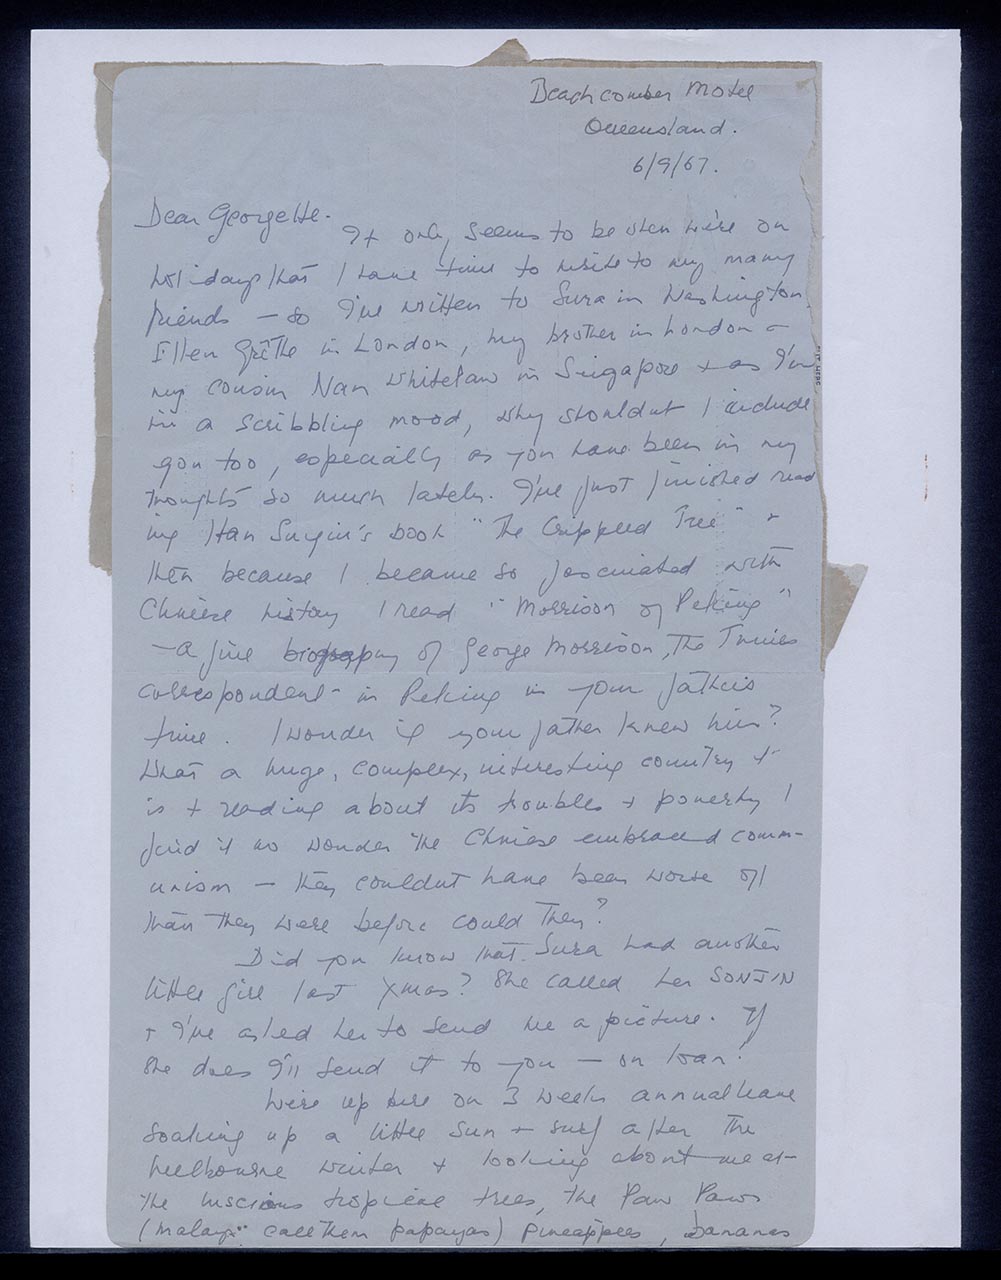 Beachcomber Motel
Queensland.
6/9/67.
Dear Georgette.
It only seems to be when we're on
holidays that I have time to write to my many
friends — so I've written to Sura in Washington,
Ellen Grëthe in London, my brother in London &
my cousin Nan Whitelaw in Singapore & as I'm
in a scribbling mood, why shouldn't I include
you too, especially as you have been in my
thoughts so much lately. I've just finished read
ing Han Suyin's book "The Crippled Tree" &
then because I became so fascinated with
Chinese history I read "Morrison of Peking"
— a fine biography of George Morrison, the Times
correspondent - in Peking in your father's
time. I wonder if your father knew him?
What a huge, complex, interesting country it
is & reading about its troubles & poverty I
find it no wonder the Chinese embraced comm-
unism — they couldn't have been worse off
than they were before could they?
Did you know that Sura had another
little girl last Xmas? She called her SONJIN
& I've asked her to send me a picture. If
she does I'll send it to you — on loan!
We're up here on 3 weeks annual leave
soaking up a little sun & surf after the
Melbourne winter & looking about me at
the luscious tropical trees, the Paw Paws
(Malays call them papayas) pineapples, bananas